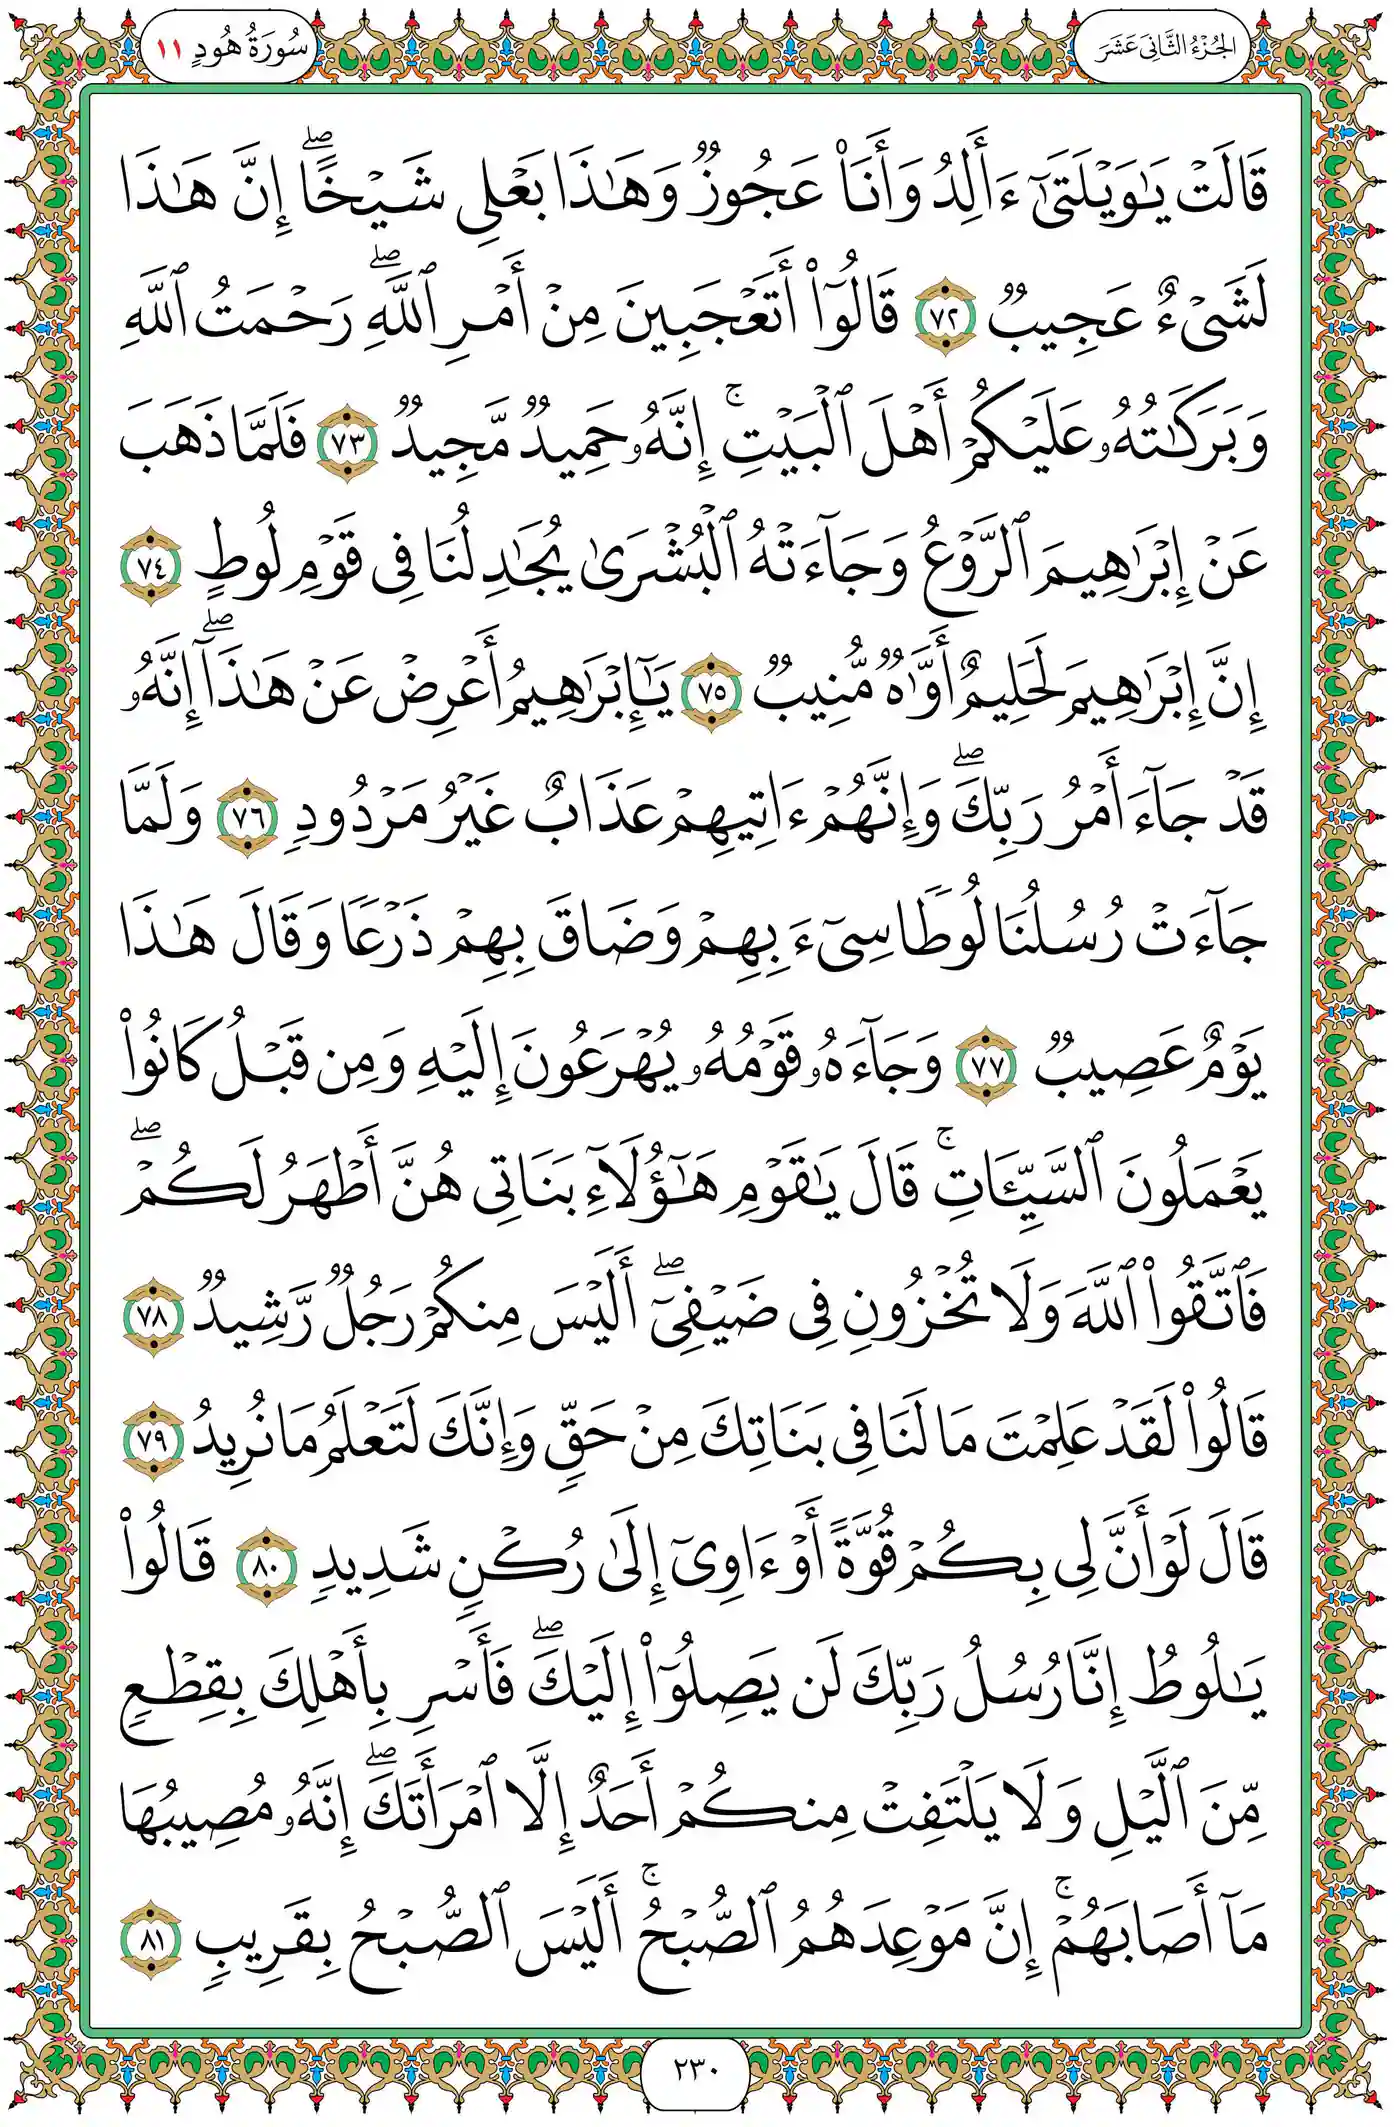 الجُزْءُ الثَّانِيَ عَشَرَ
سُورَةُ هُودٍ ١١
قَالَتْ يَٰوَيْلَتَىٰٓ ءَأَلِدُ وَأَنَا۠ عَجُوزٌ وَهَٰذَا بَعْلِى شَيْخًا ۖ إِنَّ هَٰذَا
لَشَىْءٌ عَجِيبٌ ٧٢ قَالُوٓا۟ أَتَعْجَبِينَ مِنْ أَمْرِ ٱللَّهِ ۖ رَحْمَتُ ٱللَّهِ
وَبَرَكَٰتُهُۥ عَلَيْكُمْ أَهْلَ ٱلْبَيْتِ ۚ إِنَّهُۥ حَمِيدٌ مَّجِيدٌ ٧٣ فَلَمَّا ذَهَبَ
عَنْ إِبْرَٰهِيمَ ٱلرَّوْعُ وَجَآءَتْهُ ٱلْبُشْرَىٰ يُجَٰدِلُنَا فِى قَوْمِ لُوطٍ ٧٤
إِنَّ إِبْرَٰهِيمَ لَحَلِيمٌ أَوَّٰهٌ مُّنِيبٌ ٧٥ يَٰٓإِبْرَٰهِيمُ أَعْرِضْ عَنْ هَٰذَآ ۖ إِنَّهُۥ
قَدْ جَآءَ أَمْرُ رَبِّكَ ۖ وَإِنَّهُمْ ءَاتِيهِمْ عَذَابٌ غَيْرُ مَرْدُودٍ ٧٦ وَلَمَّا
جَآءَتْ رُسُلُنَا لُوطًا سِىٓءَ بِهِمْ وَضَاقَ بِهِمْ ذَرْعًا وَقَالَ هَٰذَا
يَوْمٌ عَصِيبٌ ٧٧ وَجَآءَهُۥ قَوْمُهُۥ يُهْرَعُونَ إِلَيْهِ وَمِن قَبْلُ كَانُوا۟
يَعْمَلُونَ ٱلسَّيِّـَٔاتِ ۚ قَالَ يَٰقَوْمِ هَٰٓؤُلَآءِ بَنَاتِى هُنَّ أَطْهَرُ لَكُمْ ۖ
فَٱتَّقُوا۟ ٱللَّهَ وَلَا تُخْزُونِ فِى ضَيْفِىٓ ۖ أَلَيْسَ مِنكُمْ رَجُلٌ رَّشِيدٌ ٧٨
قَالُوا۟ لَقَدْ عَلِمْتَ مَا لَنَا فِى بَنَاتِكَ مِنْ حَقٍّ وَإِنَّكَ لَتَعْلَمُ مَا نُرِيدُ ٧٩
قَالَ لَوْ أَنَّ لِى بِكُمْ قُوَّةً أَوْ ءَاوِىٓ إِلَىٰ رُكْنٍ شَدِيدٍ ٨٠ قَالُوا۟
يَٰلُوطُ إِنَّا رُسُلُ رَبِّكَ لَن يَصِلُوٓا۟ إِلَيْكَ ۖ فَأَسْرِ بِأَهْلِكَ بِقِطْعٍ
مِّنَ ٱلَّيْلِ وَلَا يَلْتَفِتْ مِنكُمْ أَحَدٌ إِلَّا ٱمْرَأَتَكَ ۖ إِنَّهُۥ مُصِيبُهَا
مَآ أَصَابَهُمْ ۚ إِنَّ مَوْعِدَهُمُ ٱلصُّبْحُ ۚ أَلَيْسَ ٱلصُّبْحُ بِقَرِيبٍ ٨١
٢٣٠